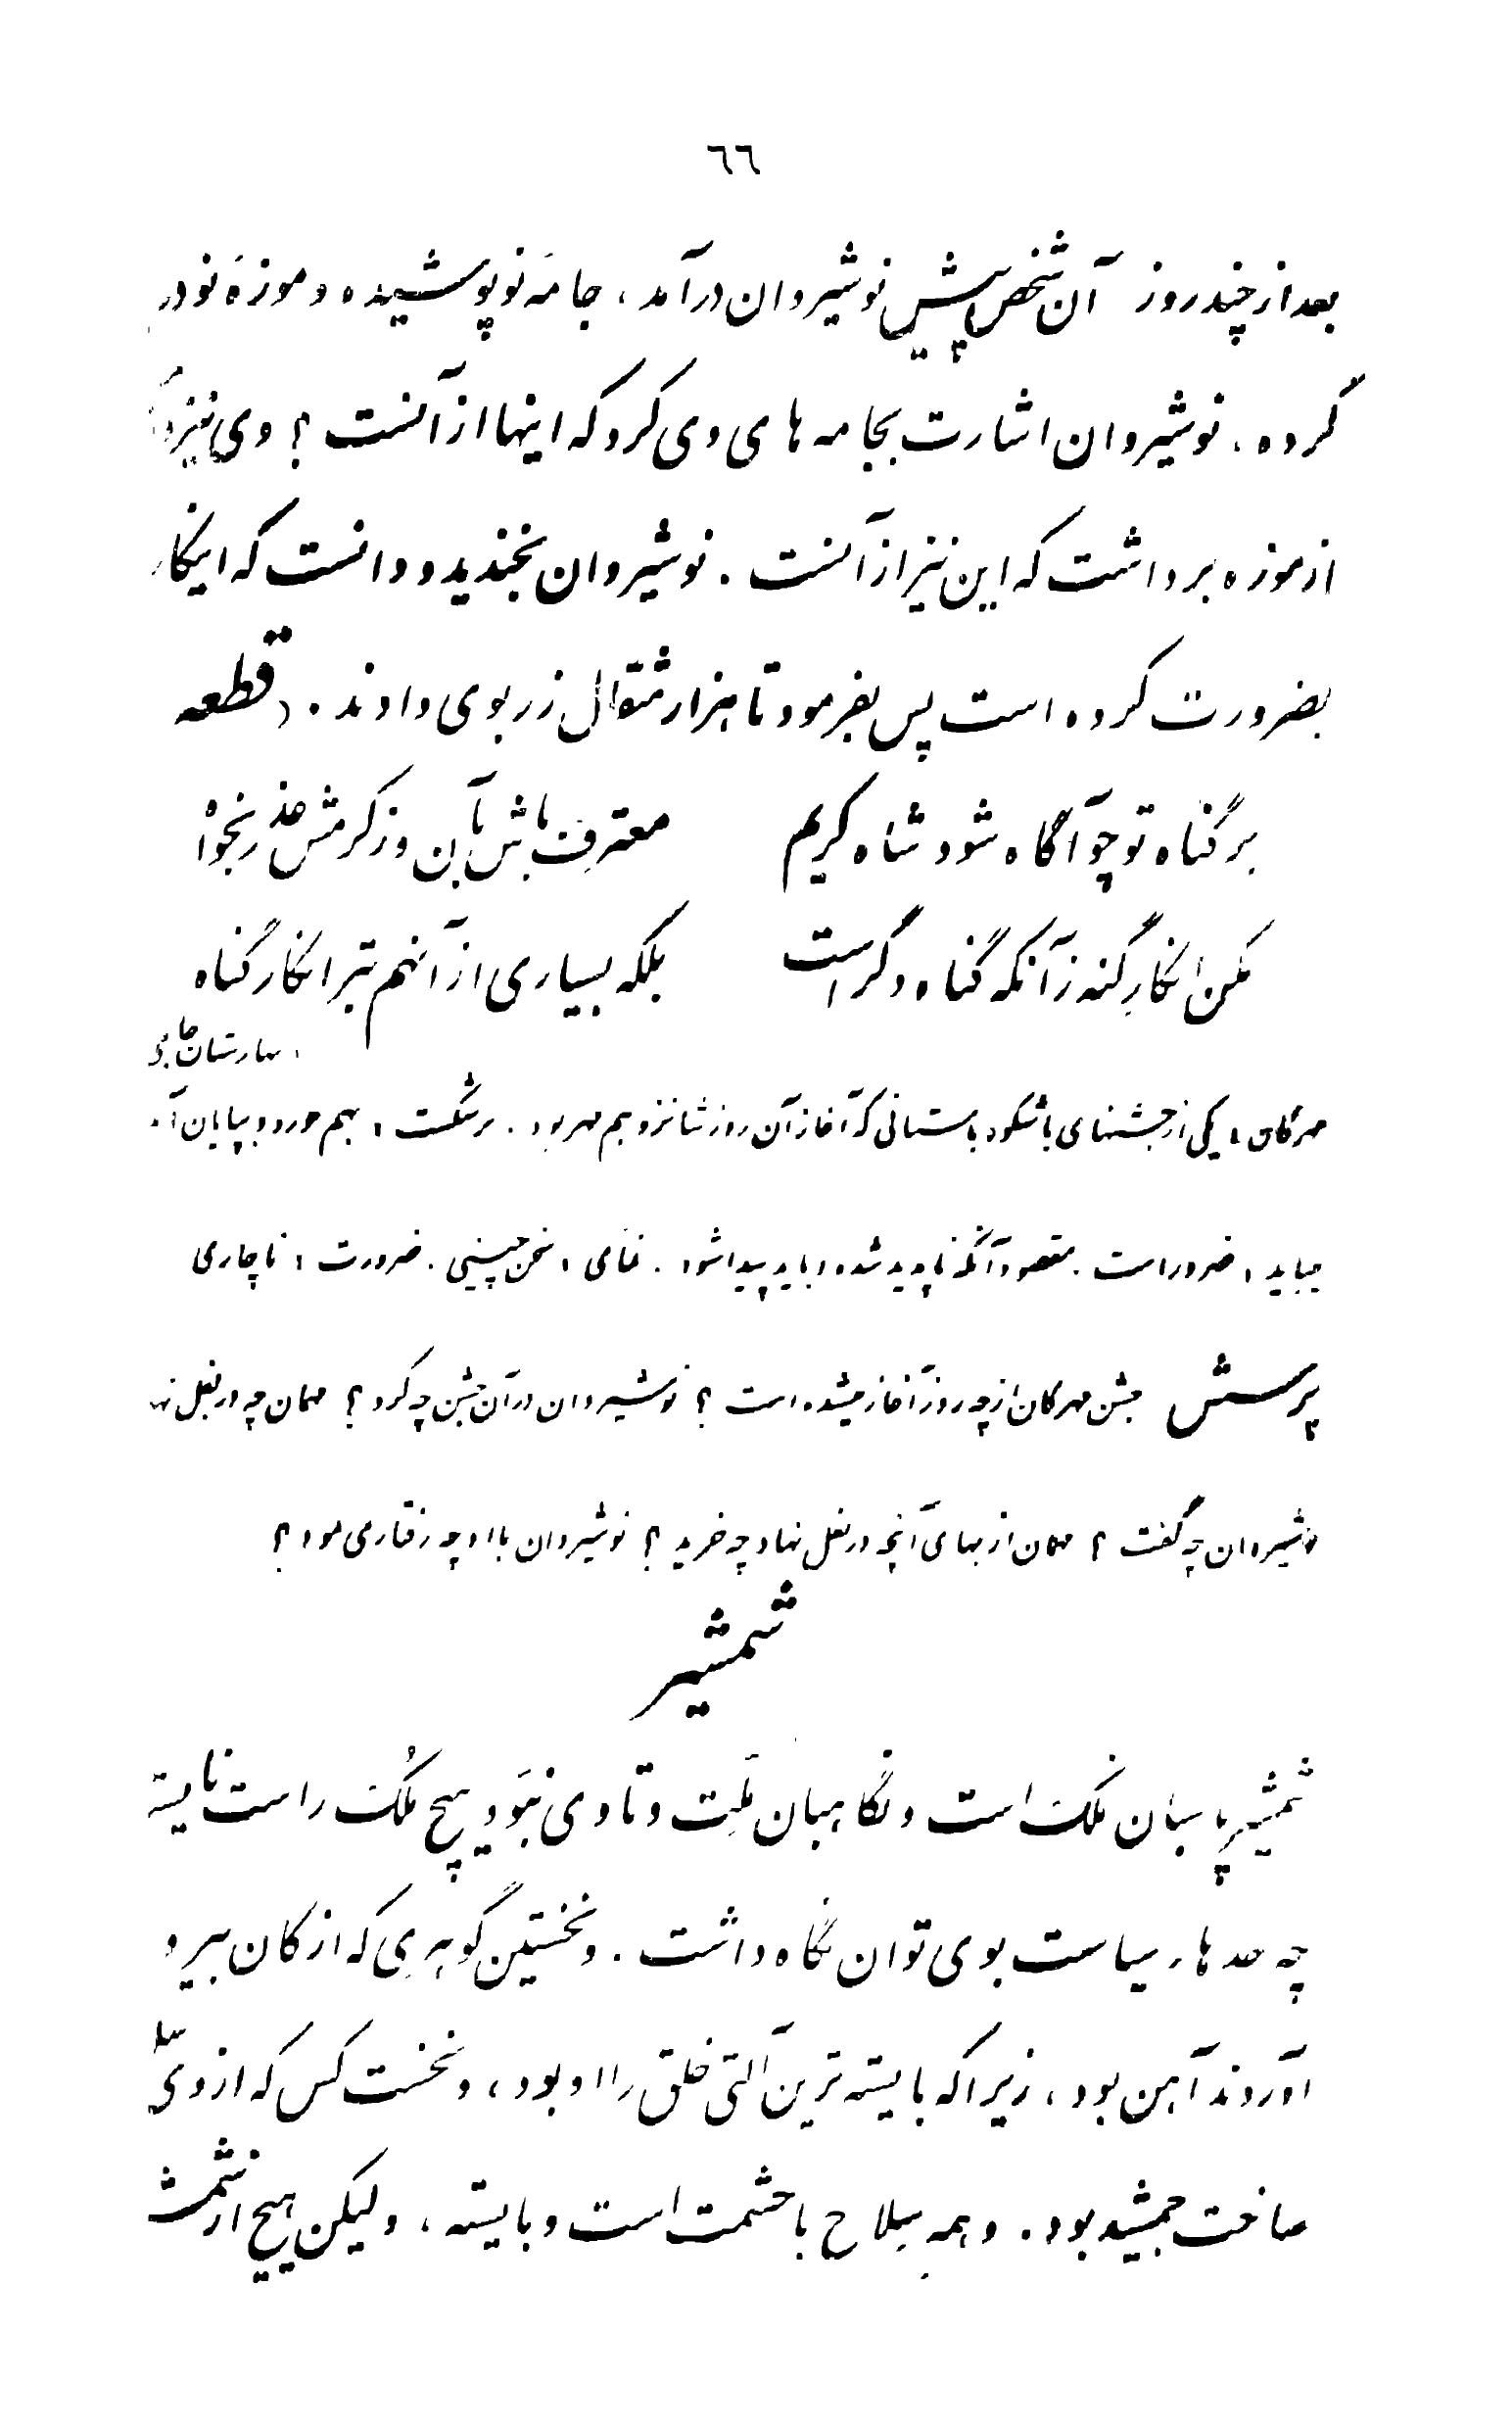 ٦٦
بعد از چند روز آن شخص پیش نوشیروان درآمد، جامهٔ نو پوشیده و موزهٔ نو در
کرده. نوشیروان اشارت بجامه های وی کرد که اینها از آنست ؟ وی نیز
از موزه برداشت که این نیز از آنست . نوشیروان بخندید و دانست که اینکار
بضرورت کرده است پس بفرمود تا هزار مثقال زر بوی دادند . قطعه
بر گناه تو چو آگاه شود شاه کریم معترف باش بآن وز کرمش عذر بخواه
مکن انکار گنه زآنکه گناه دگر است بلکه بسیاری از آنهم بتر انکار گناه
بهارستان جامی
مهرگان ، یکی از جشنهای باشکوه باستانی که آغاز آن روز شانزدهم مهر بود . برشکست ، بهم خورد و بپایان آمد
میباید ، ضرور است . مقصود آنکه ناپدید شده باید پیدا شود . غمّازی ، سخن چینی . ضرورت ، ناچاری
پرسش جشن مهرگان از چه روز آغاز میشده است ؟ نوشیروان در آن جشن چه کرد ؟ مهمان چه در بغل نهاد
نوشیروان چه گفت ؟ مهمان از بهای آنچه در بغل نهاد چه خرید ؟ نوشیروان با او چه رفتاری نمود ؟
شمشیر
شمشیر پاسبان مُلک است و نگاهبان مِلّت و تا وی نبوَد هیچ مُلک راست نایستد
چه حدها، سیاست بوی توان نگاه داشت . و نخستین گوهری که از کان بیرو
آوردند آهن بود ، زیرا که بایسته ترین آلتی خلق را او بود ، و نخست کس که از وی سلاح
ساخت جمشید بود . و همه سلاح با حشمت است و بایسته ، ولیکن هیچ از شمش